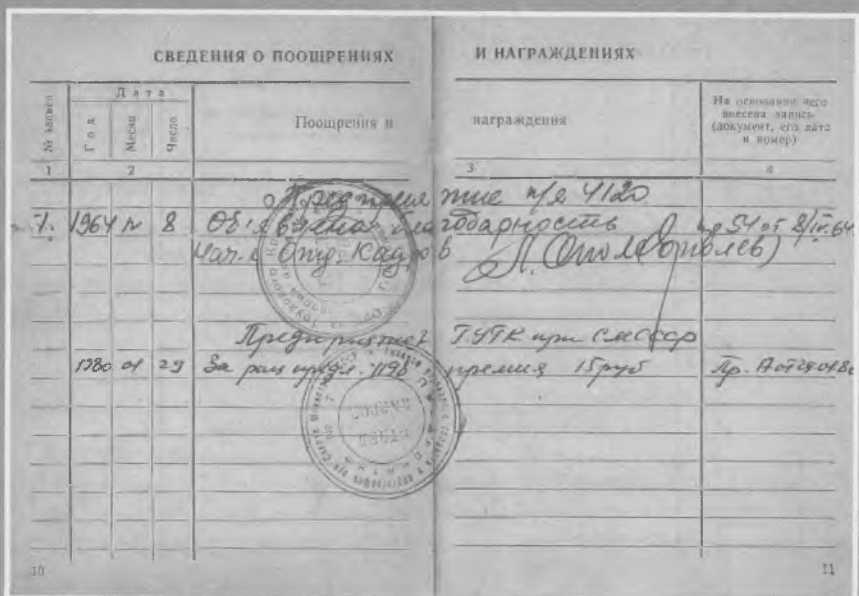 СВЕДЕНИЯ О ПООЩРЕНИЯХ И НАГРАЖДЕНИЯХ
№ записи
Дата
Год
Месяц
Число
Поощрения и награждения
На основании чего внесена запись (документ, его дата и номер)
1 2 3 4
Предприятие п/я 4120
1. 1964 IV 8 Объявлена благодарность пр 54 от 8/IV.64
Нач. Отд. Кадров
Предприятие ГУГК при СМ СССР
1980 01 29 За рац. предл. 1198 премия 15 руб
10
11